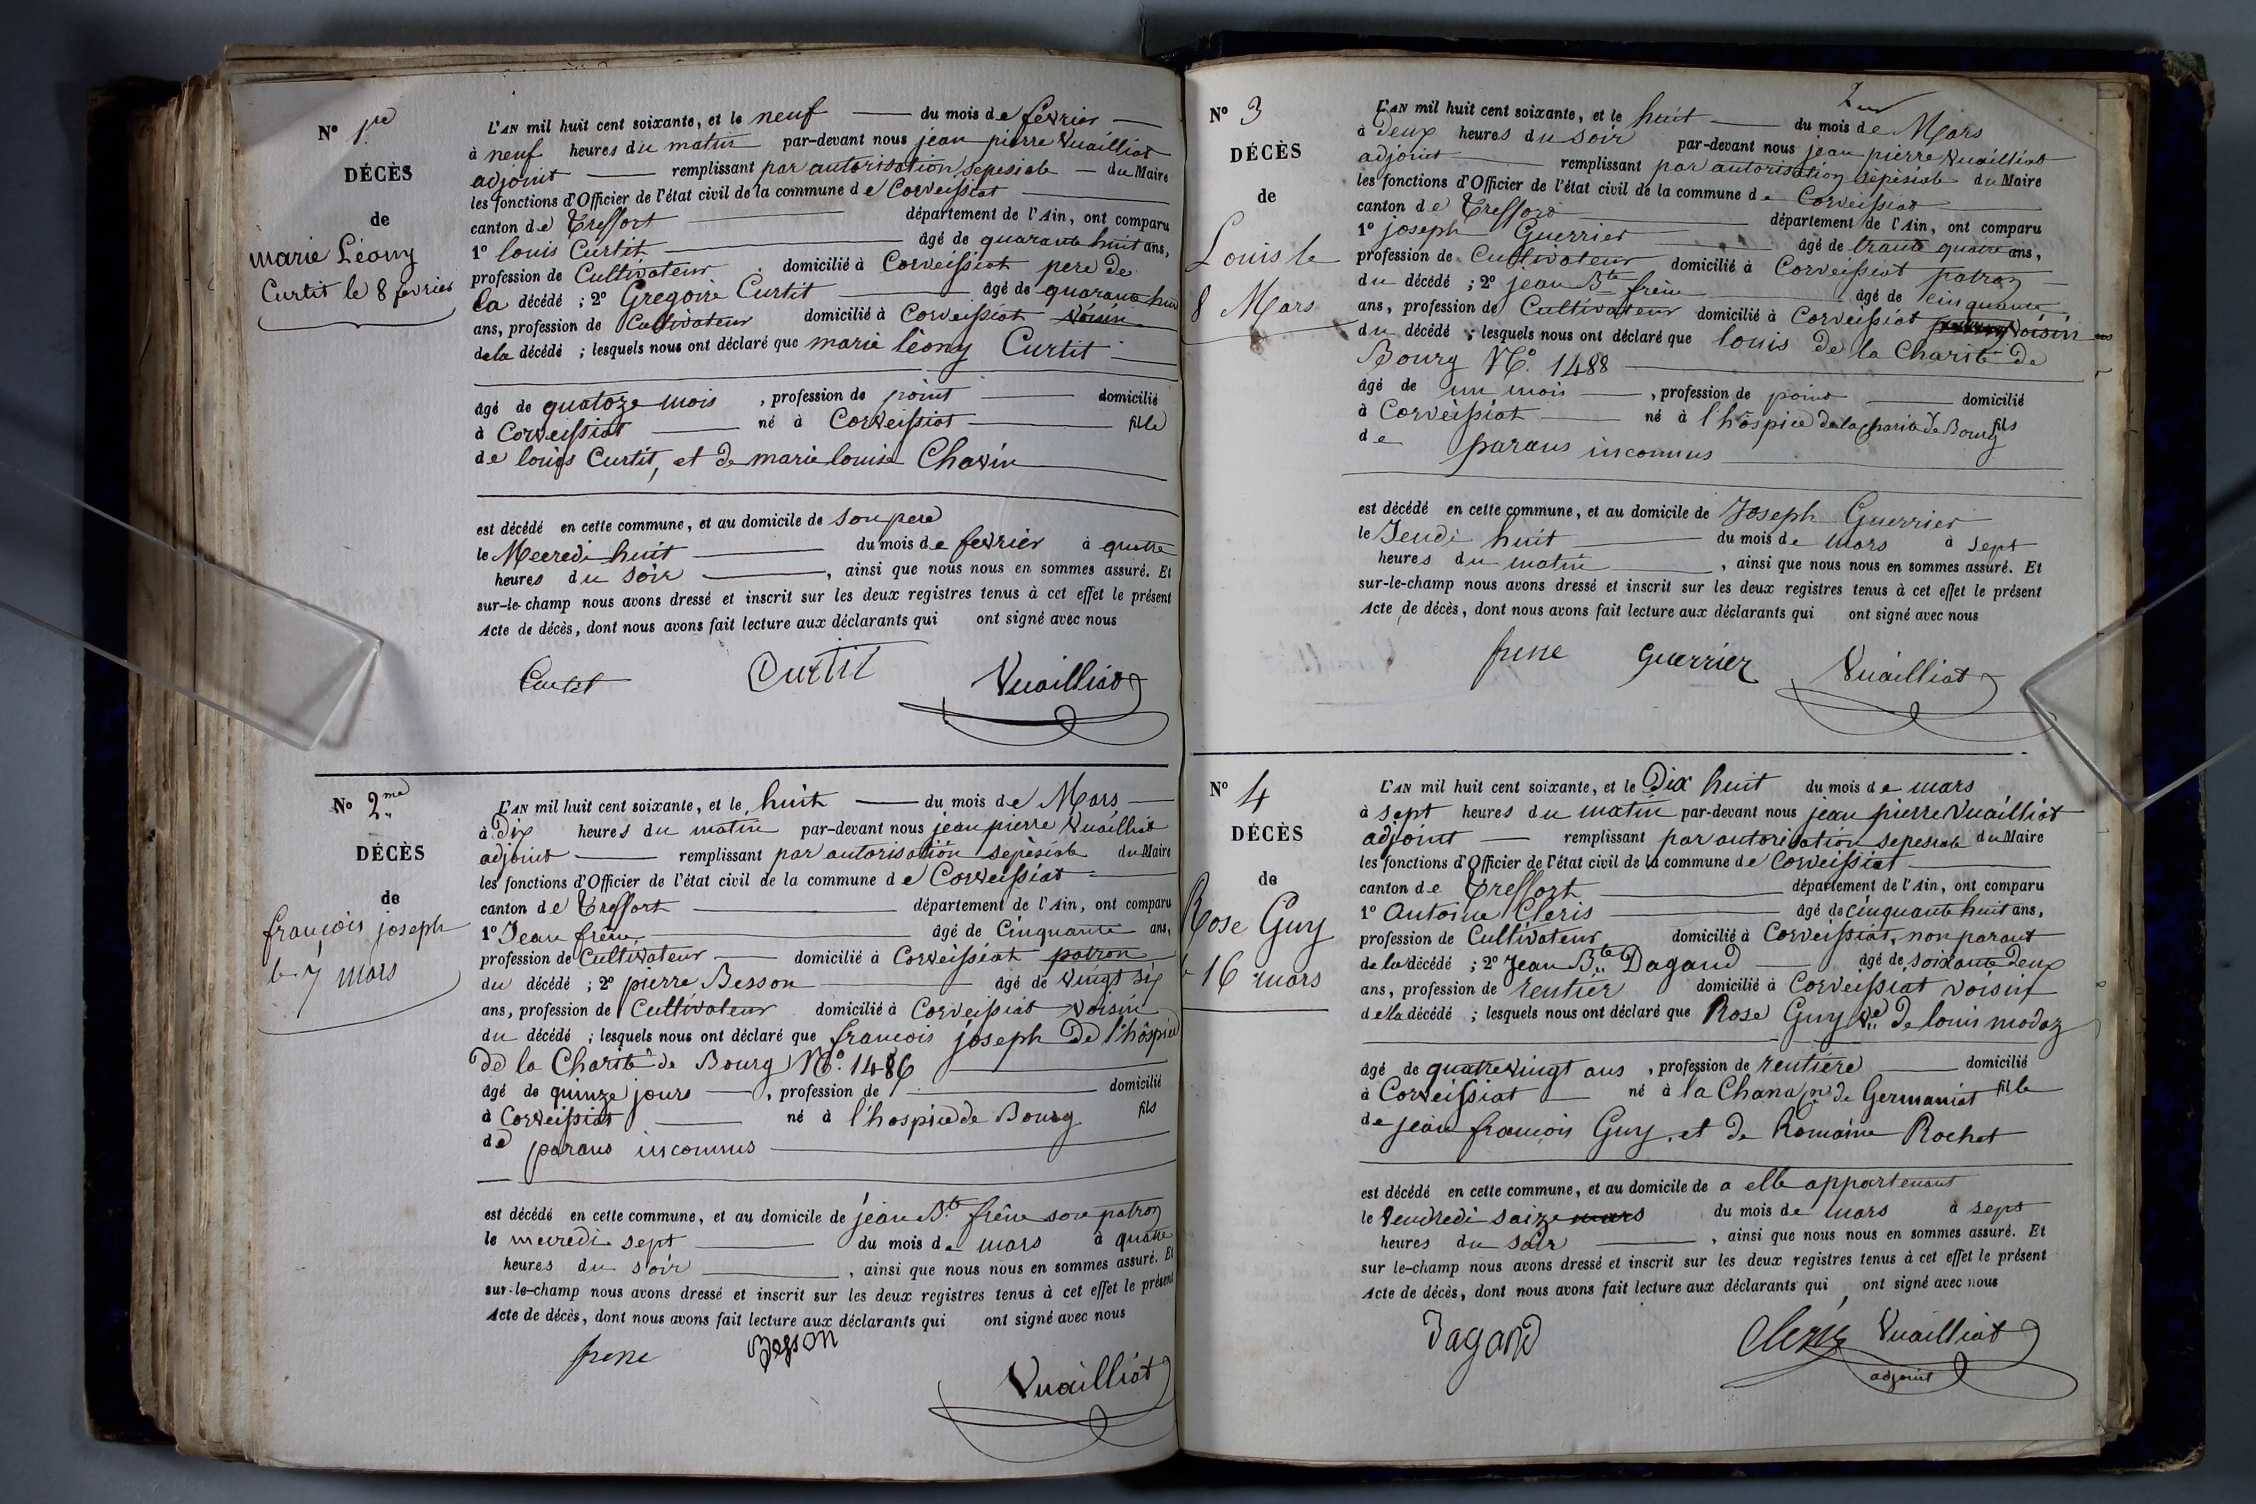 N° 1re
DÉCÈS
de
marie Léony
Curtit le 8 fevrier
L'AN mil huit cent soixante, et le neuf du mois de fevrier
à neuf heures du matin par-devant nous jean pierre Vuailliat
adjoint remplissant par autorisation sepesiale du Maire
les fonctions d'Officier de l'état civil de la commune de Corveissiat
canton de Treffort département de l'Ain, ont comparu
1° louis Curtit âgé de quarante huit ans,
profession de Cultivateur domicilié à Corveissiat pere de
la décédé ; 2° Gregoire Curtit âgé de quarante huit
ans, profession de Cultivateur domicilié à Corveissiat voisin
de la décédé ; lesquels nous ont déclaré que marie léony Curtit
âgé de quatoze mois , profession de point domicilié
à Corveissiat né à Corveissiat fille
de louis Curtit, et de marie louise Chavin
est décédé en cette commune, et au domicile de son pere
le Mecredi huit du mois de fevrier à quatre
heures du soir , ainsi que nous nous en sommes assuré. Et
sur-le-champ nous avons dressé et inscrit sur les deux registres tenus à cet effet le présent
Acte de décès, dont nous avons fait lecture aux déclarants qui ont signé avec nous
Curtit Curtit Vuailliat
N° 2me
DÉCÈS
de
françois joseph
le 7 mars
L'AN mil huit cent soixante, et le huit du mois de Mars
à Dix heures du matin par-devant nous jean pierre Vuailliat
adjoint remplissant par autorisation sepésiale du Maire
les fonctions d'Officier de l'état civil de la commune de Corveissiat
canton de Treffort département de l'Ain, ont comparu
1° Jean frêne âgé de Cinquante ans,
profession de Cultivateur domicilié à Corveissiat patron
du décédé ; 2° pierre Besson âgé de vingt six
ans, profession de Cultivateur domicilié à Corveissiat voisin
du décédé ; lesquels nous ont déclaré que françois joseph de l'hôspice
de la Charité de Bourg N°. 1486
âgé de quinze jours , profession de domicilié
à Corveissiat né à l'hospice de Bourg fils
de parans inconnus
est décédé en cette commune, et au domicile de jean Bte frêne son patron
le mecredi sept du mois de mars à quatre
heures du soir , ainsi que nous nous en sommes assuré. Et
sur-le-champ nous avons dressé et inscrit sur les deux registres tenus à cet effet le présent
Acte de décès, dont nous avons fait lecture aux déclarants qui ont signé avec nous
frene Besson
Vuailliat
N° 3
DÉCÈS
de
Louis le
8 Mars
L'AN mil huit cent soixante, et le huit du mois de Mars
à Deux heures du soir par-devant nous jean pierre Vuailliat
adjoint remplissant par autorisation sepésiale du Maire
les fonctions d'Officier de l'état civil de la commune de Corveissiat
canton de Treffort département de l'Ain, ont comparu
1° joseph Guerrier âgé de trante quatre ans,
profession de Cultivateur domicilié à Corveissiat patron
du décédé ; 2° jean Bte frêne âgé de cinquante
ans, profession de Cultivateur domicilié à Corveissiat voisin
du décédé ; lesquels nous ont déclaré que louis de la Charité de
Bourg N°. 1488
âgé de un mois , profession de point domicilié
à Corveissiat né à l'hôspice de la Charité de Bourg fils
de parans inconnus
est décédé en cette commune, et au domicile de Joseph Guerrier
le Jeudi huit du mois de mars à sept
heures du matin , ainsi que nous nous en sommes assuré. Et
sur-le-champ nous avons dressé et inscrit sur les deux registres tenus à cet effet le présent
Acte de décès, dont nous avons fait lecture aux déclarants qui ont signé avec nous
frene Guerrier Vuailliat
N° 4
DÉCÈS
de
Rose Guy
le 16 mars
L'AN mil huit cent soixante, et le Dix huit du mois de mars
à sept heures du matin par-devant nous jean pierre Vuailliat
adjoint remplissant par autorisation sepesiale du Maire
les fonctions d'Officier de l'état civil de la commune de Corveissiat
canton de Treffort département de l'Ain, ont comparu
1° Antoine Cleris âgé de cinquante huit ans,
profession de Cultivateur domicilié à Corveissiat, non parant
de la décédé ; 2° Jean Bte Dagand âgé de soixante Deux
ans, profession de rentier domicilié à Corveissiat voisin
de la décédé ; lesquels nous ont déclaré que Rose Guy Ve de louis modaz
âgé de quatre vingt ans , profession de rentière domicilié
à Corveissiat né à la Chana de Germaniat fille
de jean françois Guy, et de Romaine Rochet
est décédé en cette commune, et au domicile de a elle appartenant
le Vendredi saize mars du mois de mars à sept
heures du soir , ainsi que nous nous en sommes assuré. Et
sur le-champ nous avons dressé et inscrit sur les deux registres tenus à cet effet le présent
Acte de décès, dont nous avons fait lecture aux déclarants qui ont signé avec nous
Dagand Cleriz Vuailliat
adjoint